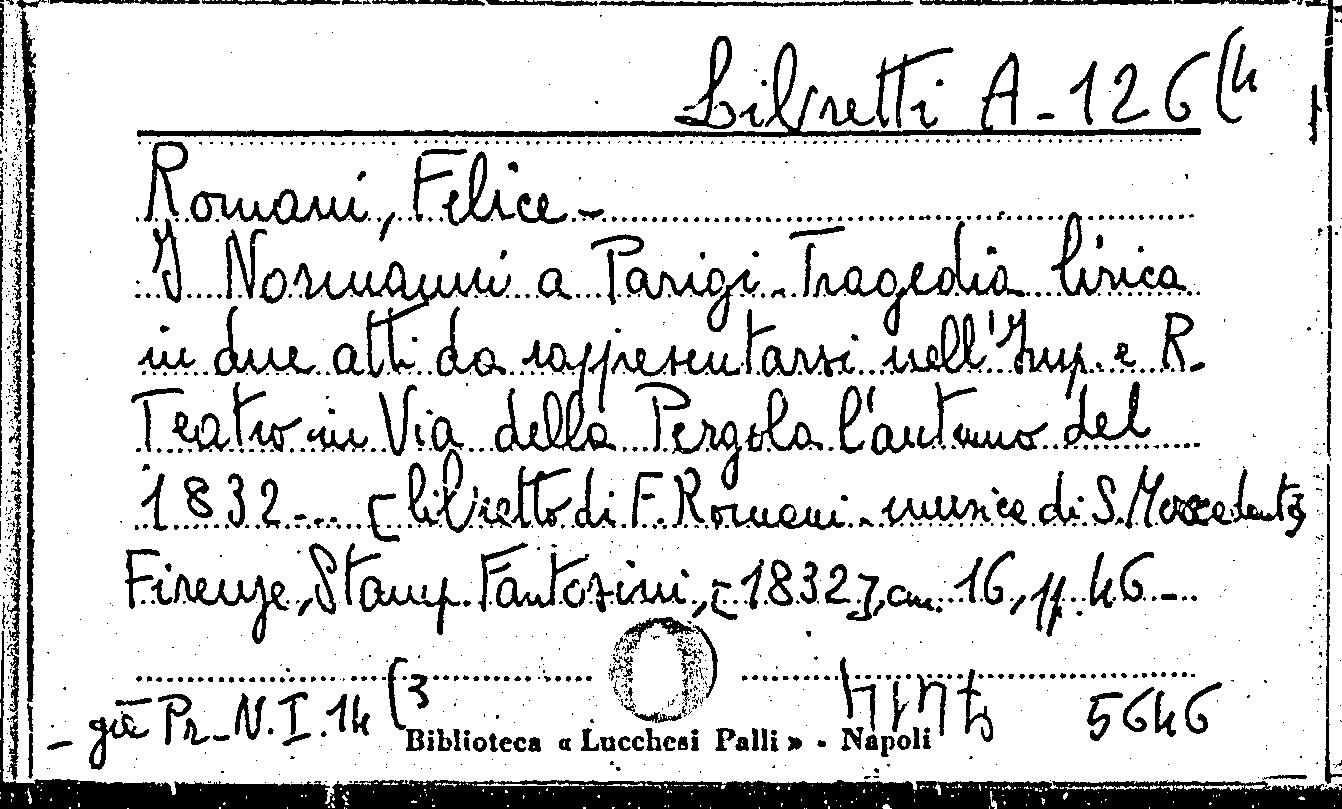 Libretti A-126(4
Romani, Felice-
I Normanni a Parigi-Tragedia lirica
in due atti da rappresentarsi nell'Imp. e R.
Teatro in Via della Pergola l'autunno del
1832-.. [libretto di F. Romani-musica di S. Mercadante]
Firenze, Stamp. Fantosini, [1832], cm. 16, pp. 46-
- già Pr-N.I.14 (3
5646
Biblioteca « Lucchesi Palli » - Napoli